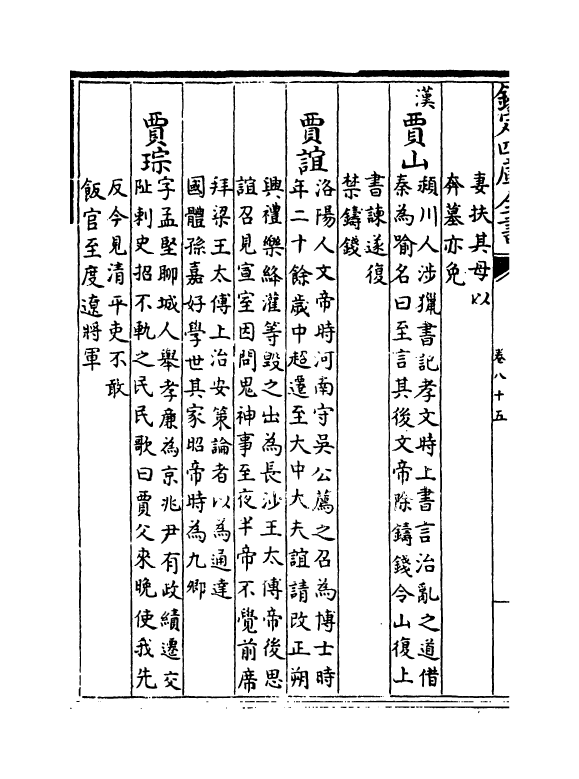 欽定四庫全書
卷八十五
妻扶其母以
奔墓亦免
漢
賈山
潁川人涉獵書記孝文時上書言治亂之道借
秦為喻名曰至言其後文帝除鑄錢令山復上
書諫遂復
禁鑄錢
賈誼
洛陽人文帝時河南守吳公薦之召為博士時
年二十餘歲中超遷至大中大夫誼請改正朔
興禮樂絳灌等毀之出為長沙王太傅帝後思
誼召見宣室因問鬼神事至夜半帝不覺前席
拜梁王太傅上治安策論者以為通達
國體孫嘉好學世其家昭帝時為九卿
賈琮
字孟堅聊城人舉孝廉為京兆尹有政績遷交
阯刺史招不軌之民民歌曰賈父來晚使我先
反今見清平吏不敢
飯官至度遼將軍